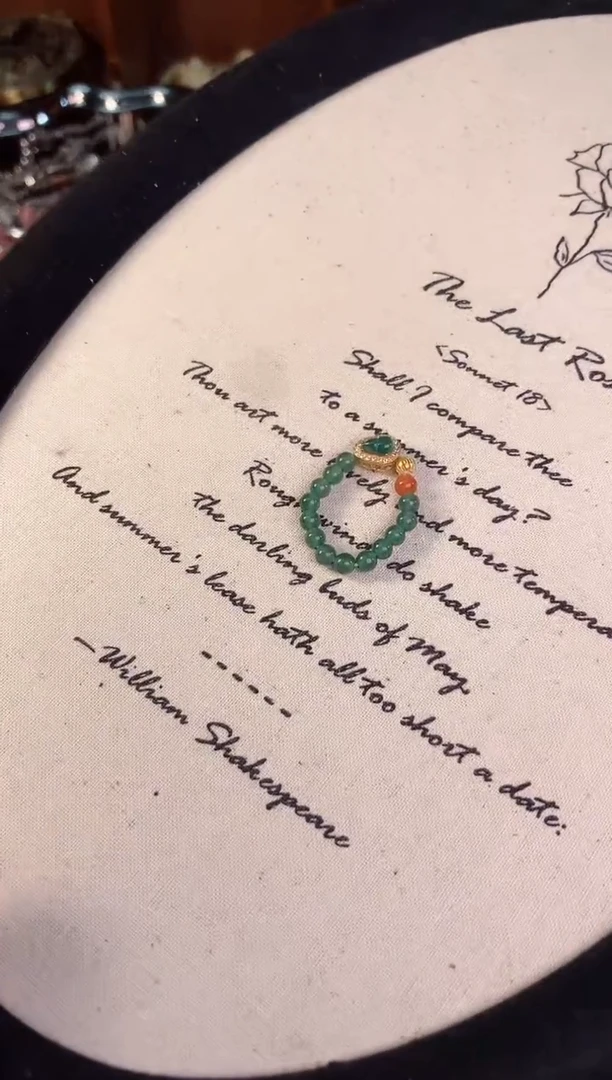 The Last Ros
<Sonnet 18>
Shall I compare thee
to a summer's day?
Thou art more lovely and more tempera
Rough winds do shake
the darling buds of May,
And summer's lease hath all too short a date:
------
—William Shakespeare